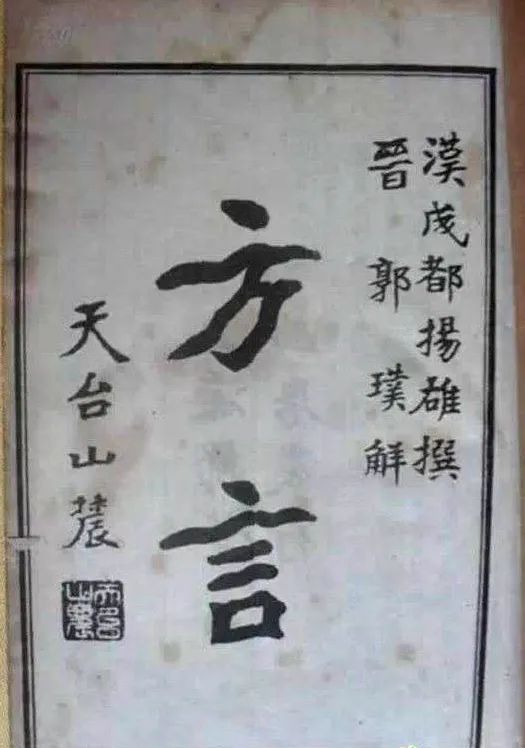 漢成都揚雄撰
晉郭璞解
方言
天台山農
天台山農